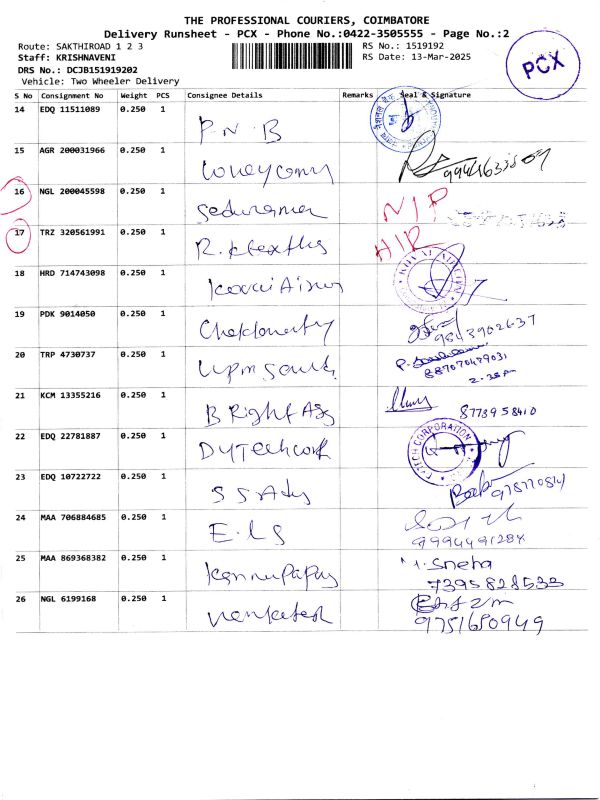 THE PROFESSIONAL COURIERS, COIMBATORE
Delivery Runsheet - PCX - Phone No.:0422-3505555 - Page No.:2
Route: SAKTHIROAD 1 2 3
RS No.: 1519192
Staff: KRISHNAVENI
RS Date: 13-Mar-2025
DRS No.: DCJB151919202
Vehicle: Two Wheeler Delivery
PCX
S No Consignment No Weight PCS Consignee Details Remarks Seal & Signature
14 EDQ 11511089 0.250 1 P.N.B
15 AGR 200031966 0.250 1
16 NGL 200045598 0.250 1 N/P
17 TRZ 320561991 0.250 1 R.
18 HRD 714743098 0.250 1
19 PDK 9014050 0.250 1 9843902637
20 TRP 4730737 0.250 1 upm
887070479031
2.38pm
21 KCM 13355216 0.250 1 BRight Ads 8773958410
22 EDQ 22781887 0.250 1 DYTechcork
TECH CORPORATION
23 EDQ 10722722 0.250 1 SS Ads
24 MAA 706884685 0.250 1 E.LS
9994491284
25 MAA 869368382 0.250 1 Sneha
7395828533
26 NGL 6199168 0.250 1 Venkatesh
9751680949